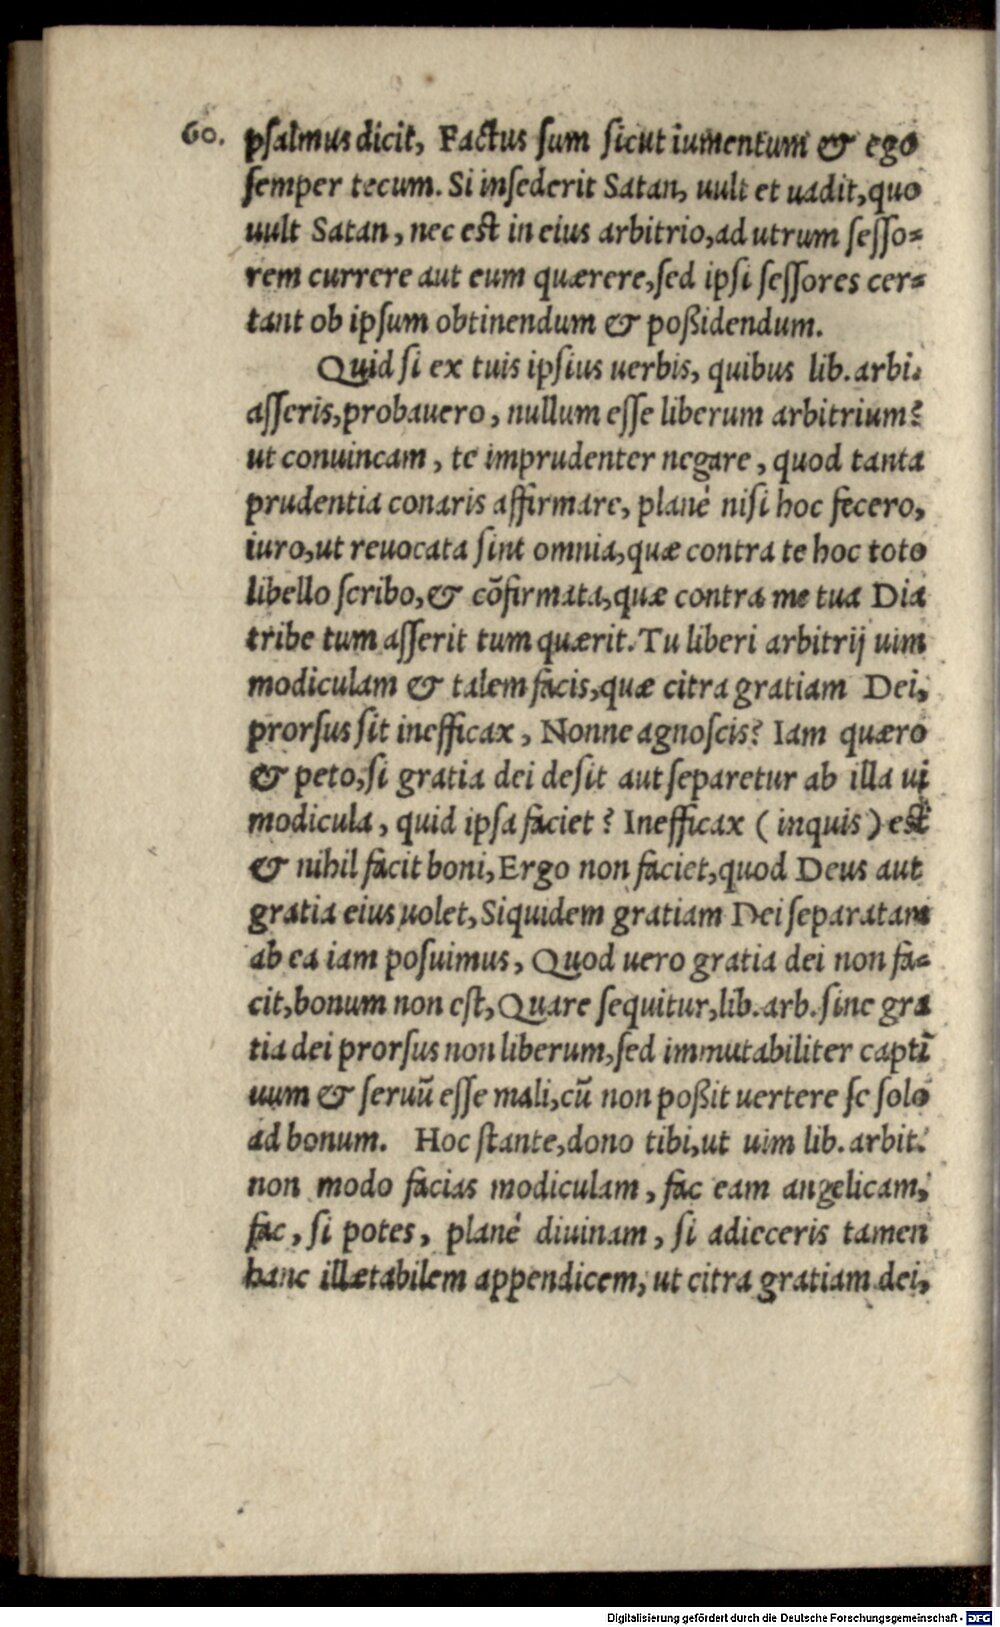 60. psalmus dicit, Factus sum sicut iumentum & ego
semper tecum. Si insederit Satan, uult et uadit, quo
uult Satan, nec est in eius arbitrio, ad utrum sesso-
rem currere aut eum quærere, sed ipsi sessores cer-
tant ob ipsum obtinendum & poßidendum.
Quid si ex tuis ipsius uerbis, quibus lib. arbi.
asseris, probauero, nullum esse liberum arbitrium?
ut conuincam, te imprudenter negare, quod tanta
prudentia conaris affirmare, planè nisi hoc fecero,
iuro, ut reuocata sint omnia, quæ contra te hoc toto
libello scribo, & cõfirmata, quæ contra me tua Dia
tribe tum asserit tum quærit. Tu liberi arbitrij uim
modiculam & talem facis, quæ citra gratiam Dei,
prorsus sit inefficax, Nonne agnoscis? Iam quæro
& peto, si gratia dei desit aut separetur ab illa ui
modicula, quid ipsa faciet? Inefficax (inquis) est
& nihil facit boni, Ergo non faciet, quod Deus aut
gratia eius uolet, Siquidem gratiam Dei separatam
ab ea iam posuimus, Quod uero gratia dei non fa-
cit, bonum non est, Quare sequitur, lib. arb. sine gra
tia dei prorsus non liberum, sed immutabiliter capti
uum & seruũ esse mali, cũ non poßit uertere se solo
ad bonum. Hoc stante, dono tibi, ut uim lib. arbit.
non modo facias modiculam, fac eam angelicam,
fac, si potes, planè diuinam, si adieceris tamen
hanc illætabilem appendicem, ut citra gratiam dei,
Digitalisierung gefördert durch die Deutsche Forschungsgemeinschaft - DFG